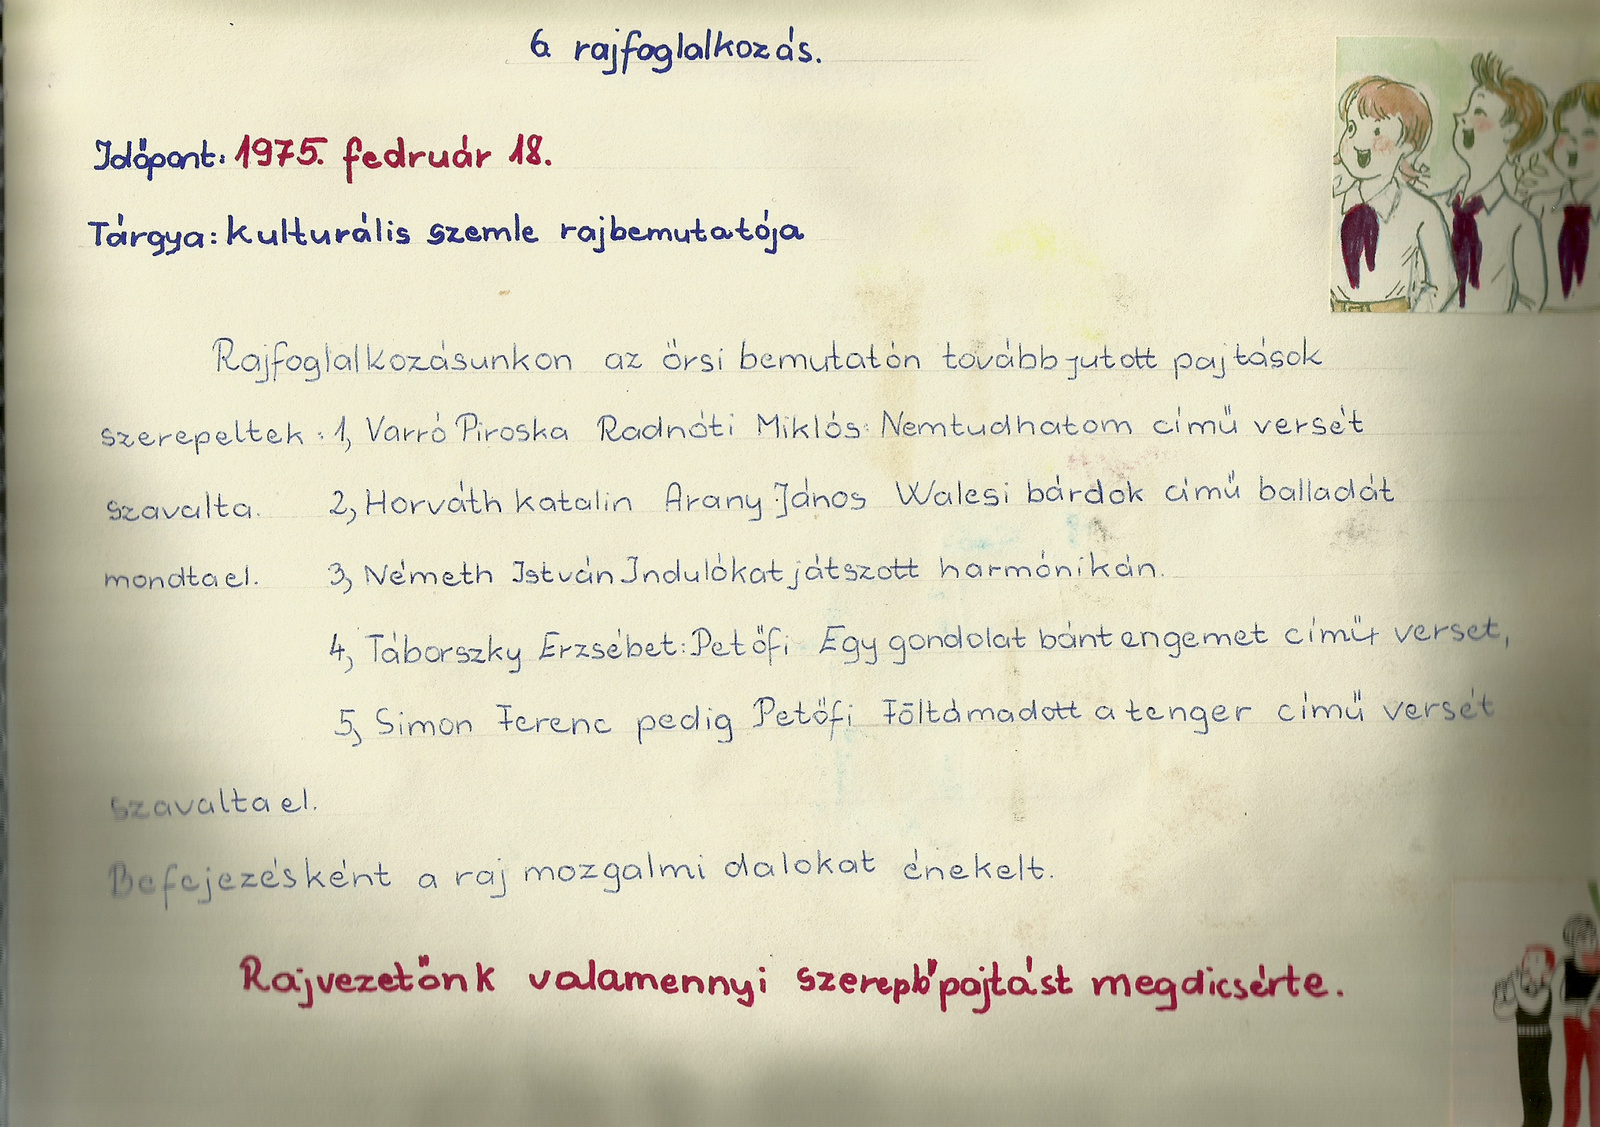 6. rajfoglalkozás.
Időpont: 1975. fedruár 18.
Tárgya: kulturális szemle rajbemutatója
Rajfoglalkozásunkon az őrsi bemutatón tovább jutott pajtások
szerepeltek: 1, Varró Piroska Radnóti Miklós: Nemtudhatom című versét
szavalta. 2, Horváth Katalin Arany János Walesi bárdok című balladát
mondta el. 3, Németh István Indulókat játszott harmónikán.
4, Táborszky Erzsébet: Petőfi Egy gondolat bánt engemet című verset,
5, Simon Ferenc pedig Petőfi Föltámadott a tenger című versét
szavalta el.
Befejezésként a raj mozgalmi dalokat énekelt.
Rajvezetőnk valamennyi szereplő pajtást megdicsérte.